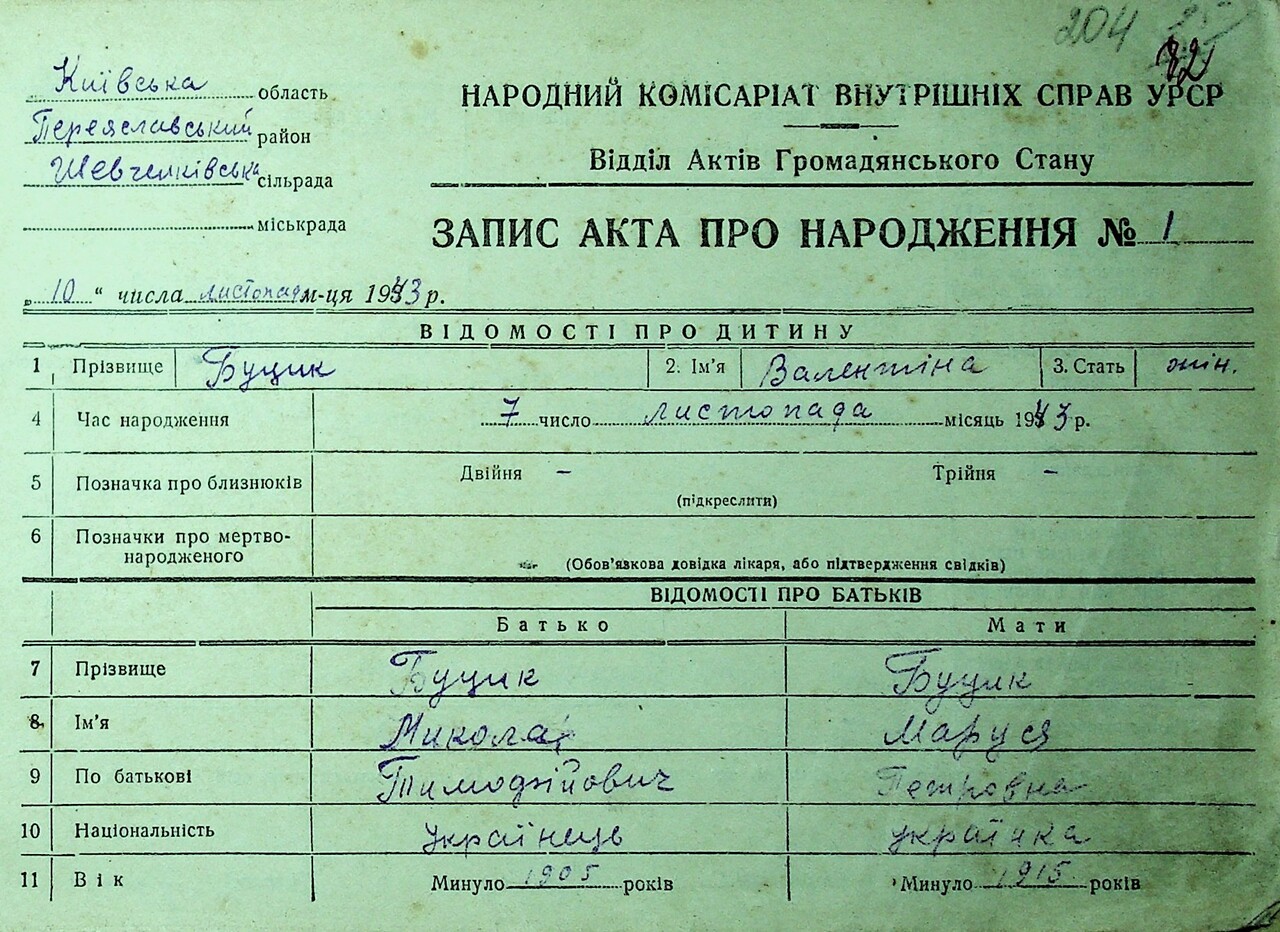 204
82
Київська область
Переяславський район
Шевченківська сільрада
міськрада
НАРОДНИЙ КОМІСАРІАТ ВНУТРІШНІХ СПРАВ УРСР
Відділ Актів Громадянського Стану
ЗАПИС АКТА ПРО НАРОДЖЕННЯ № 1
„10“ числа листопада м-ця 1943 р.
ВІДОМОСТІ ПРО ДИТИНУ
1 Прізвище Буцик 2. Ім'я Валентіна 3. Стать жін.
4 Час народження 7 число листопада місяць 1943 р.
5 Позначка про близнюків Двійня – Трійня –
(підкреслити)
6 Позначки про мертво-
народженого
(Обов'язкова довідка лікаря, або підтвердження свідків)
ВІДОМОСТІ ПРО БАТЬКІВ
Батько Мати
7 Прізвище Буцик Буцик
8 Ім'я Микола Маруся
9 По батькові Тимофійович Петровна
10 Національність українець українка
11 Вік Минуло 1905 років Минуло 1915 років